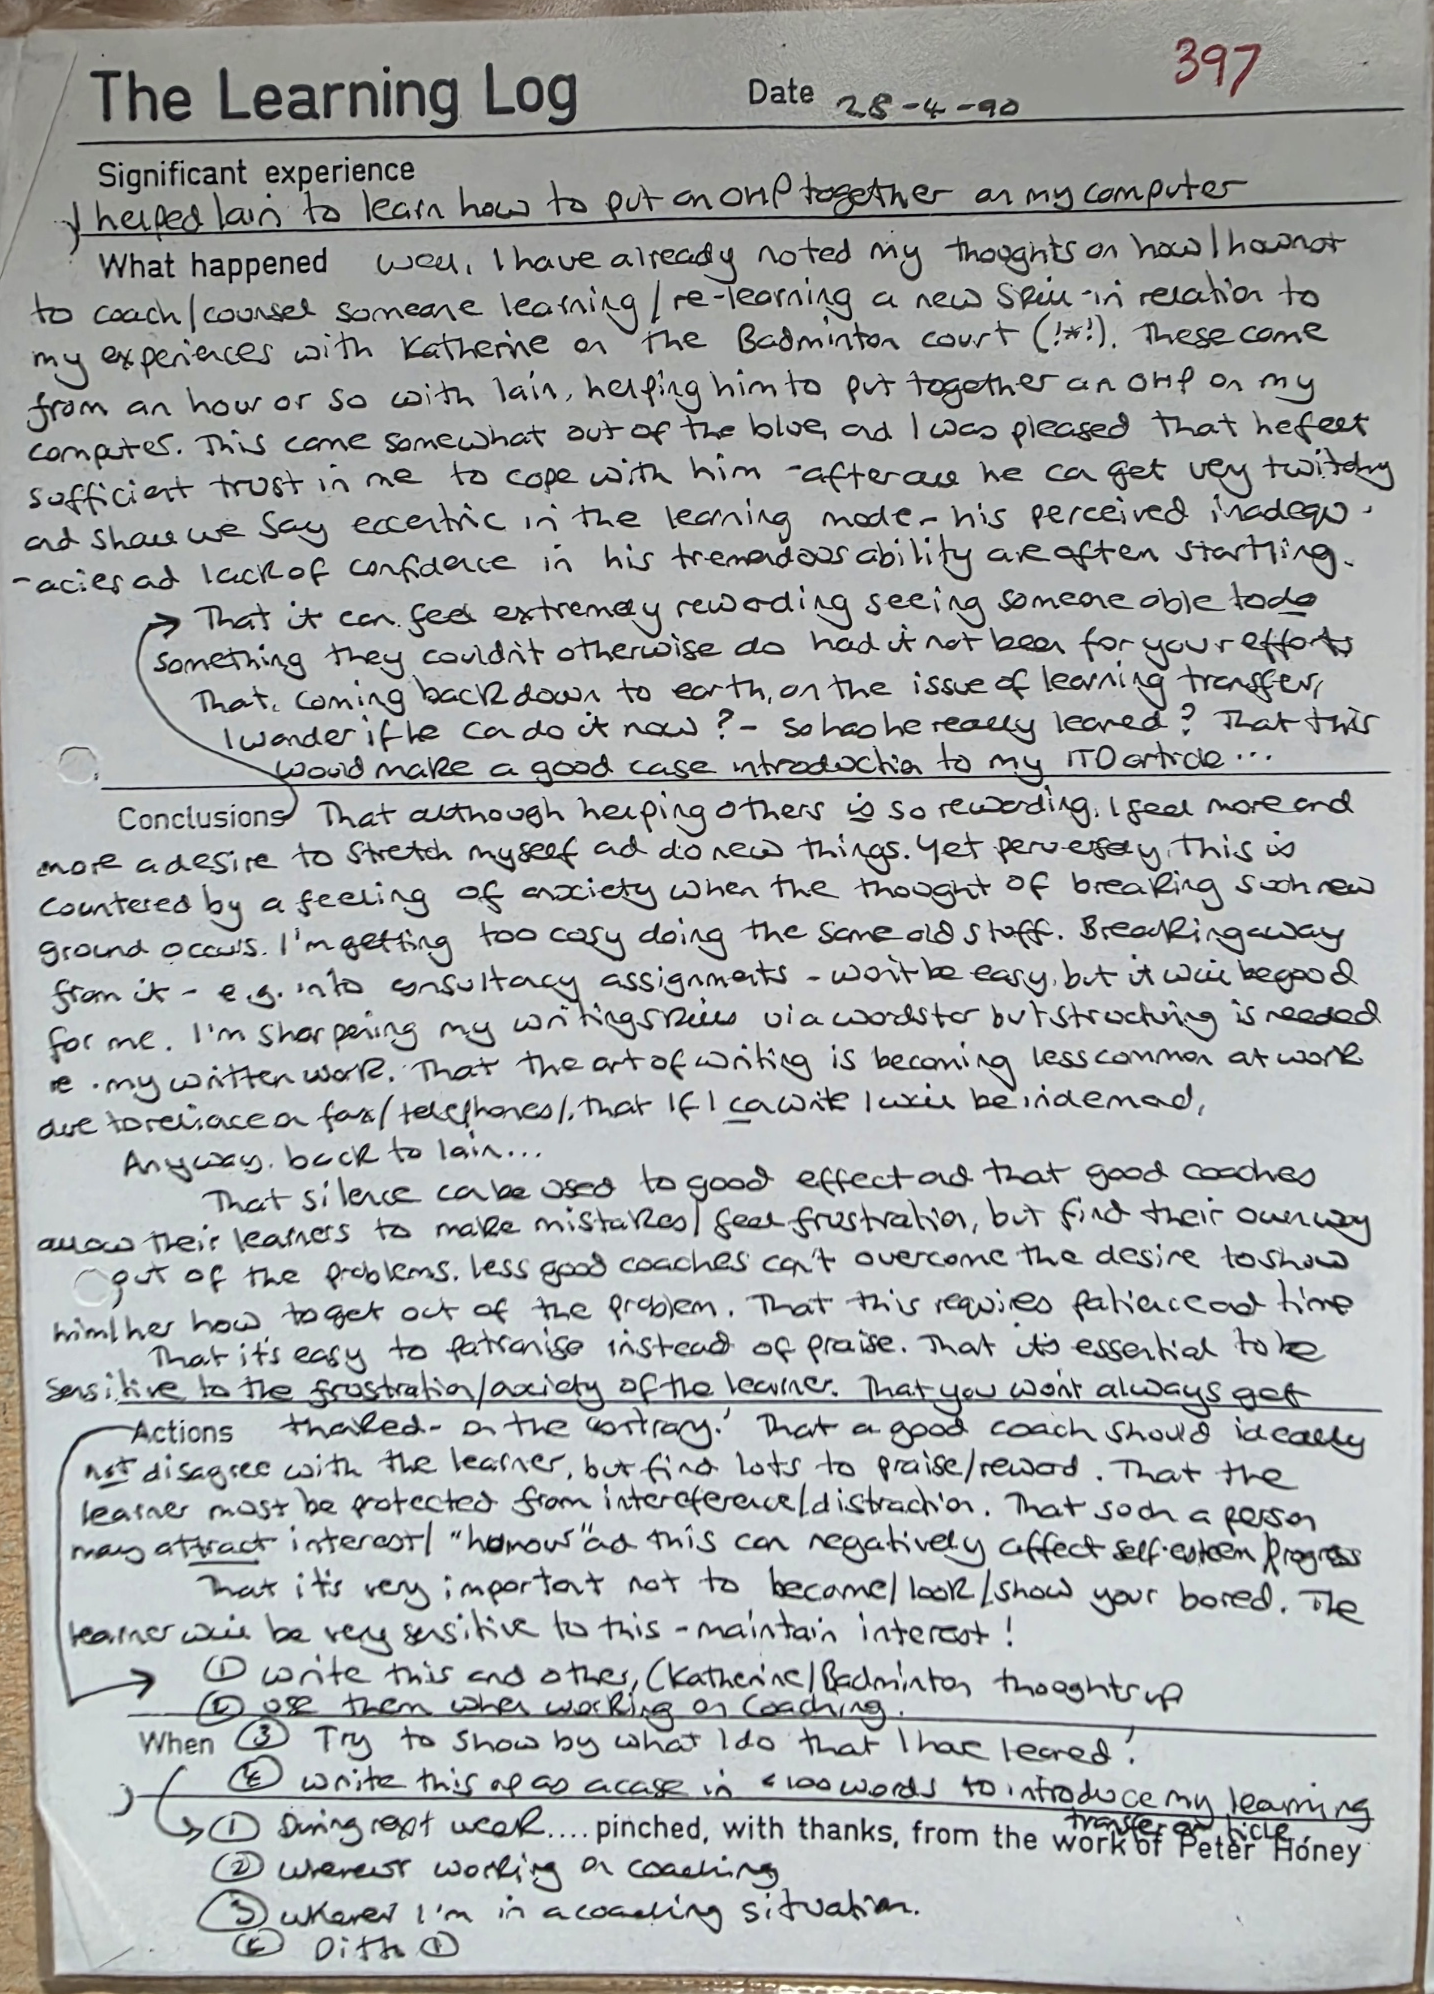 397
The Learning Log Date 28-4-90
Significant experience
I helped Iain to learn how to put an OHP together on my computer
What happened Well, I have already noted my thoughts on how/how not
to coach/counsel someone learning/re-learning a new skill - in relation to
my experiences with Katherine on the Badminton court (!*!). These come
from an hour or so with Iain, helping him to put together an OHP on my
computer. This came somewhat out of the blue, and I was pleased that he feel
sufficient trust in me to cope with him - after all he can get very twitchy
and shall we say eccentric in the learning mode - his perceived inadequ-
-acies and lack of confidence in his tremendous ability are often startling.
→ That it can feel extremely rewarding seeing someone able to do
something they couldn't otherwise do had it not been for your efforts
That, coming back down to earth, on the issue of learning transfer,
I wonder if he can do it now? - so has he really learned? That this
would make a good case introduction to my ITO article...
Conclusions That although helping others is so rewarding, I feel more and
more a desire to stretch myself and do new things. Yet perversely, this is
countered by a feeling of anxiety when the thought of breaking such new
ground occurs. I'm getting too cosy doing the same old stuff. Breaking away
from it - e.g. into consultancy assignments - won't be easy, but it will be good
for me. I'm sharpening my writing skills via wordstar but structuring is needed
re. my written work. That the art of writing is becoming less common at work
due to reliance on fax/telephones/, that if I can write I will be in demand,
Anyway, back to Iain...
That silence can be used to good effect and that good coaches
allow their learners to make mistakes/feel frustration, but find their own way
out of the problems. Less good coaches can't overcome the desire to show
him/her how to get out of the problem. That this requires patience and time
That it's easy to patronise instead of praise. That it's essential to be
sensitive to the frustration/anxiety of the learner. That you won't always get
Actions thanked - on the contrary! That a good coach should ideally
not disagree with the learner, but find lots to praise/reward. That the
learner must be protected from intereference/distraction. That such a person
may attract interest/"humour" and this can negatively affect self-esteem/progress
That it's very important not to become/look/show your bored. The
learner will be very sensitive to this - maintain interest!
→ ① Write this and other, (Katherine/Badminton thoughts up
② Use them when working on Coaching.
When ③ Try to show by what I do that I have learned!
④ Write this up as a case in <100 words to introduce my learning
transfer article.
① During next week.... pinched, with thanks, from the work of Peter Honey
② Whenever working on coaching
③ Whenever I'm in a coaching situation.
④ Ditto ①